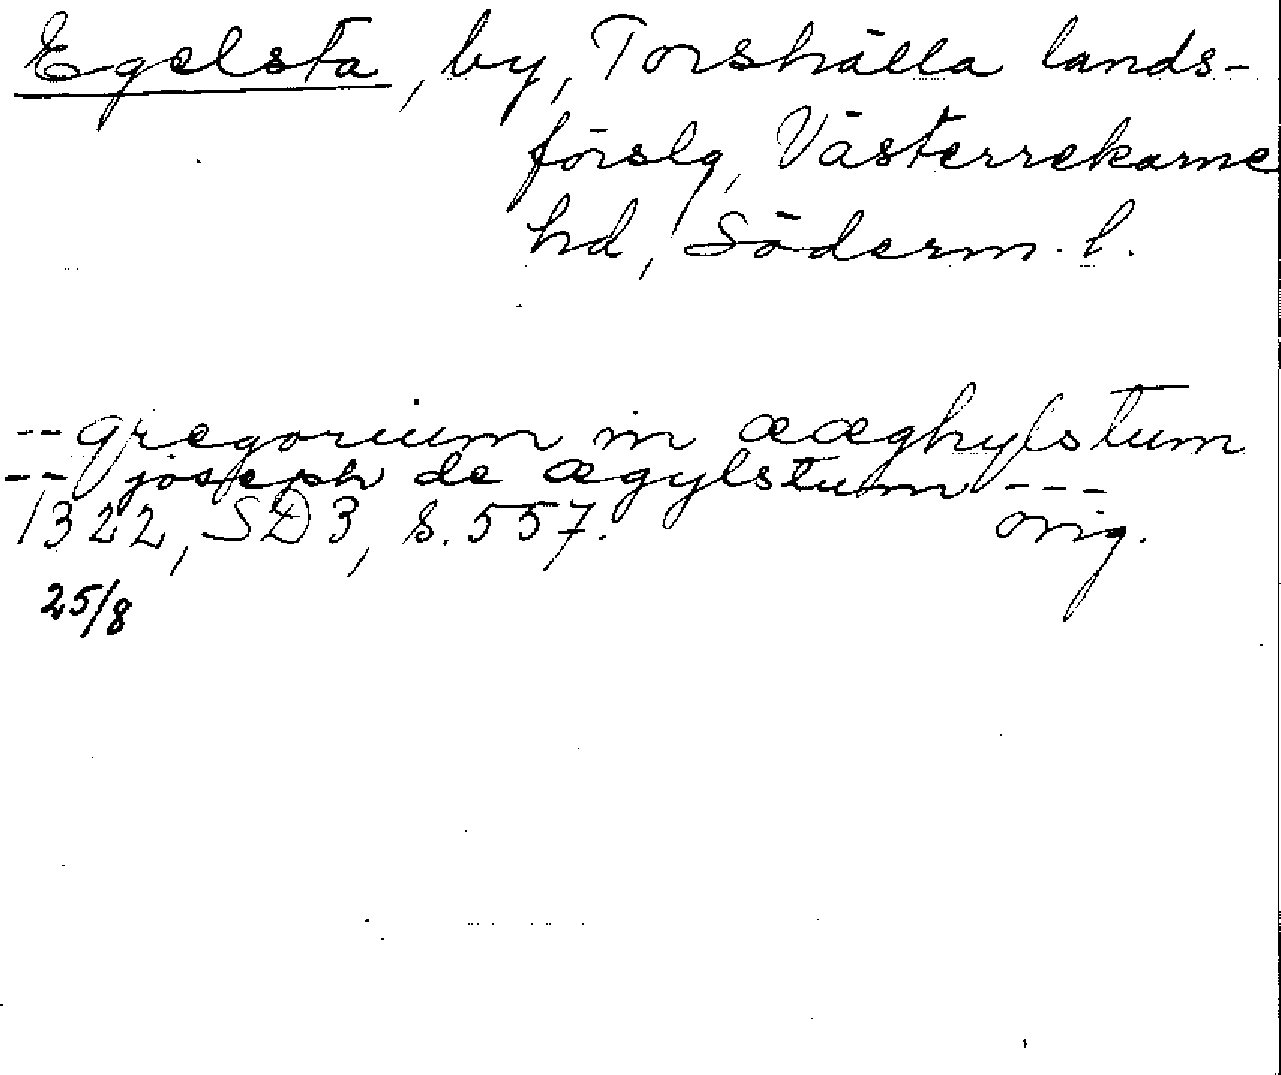 Egelsta, by, Torshälla lands-
förslg, Västerrekarne
hd, Söderm. l.
-- gregorium in ææghylstum
-- joseph de ægylstum ---
1322, SD3, s. 557. orig.
25/8